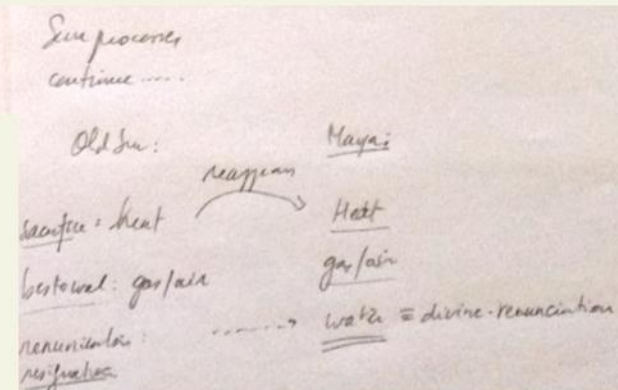 Sun processes
continue.....
Old Sun: Maya:
reappears
sacrifice = heat Heat
bestowal: gas/air gas/air
renunciation: ......→ water = divine renunciation
resignation